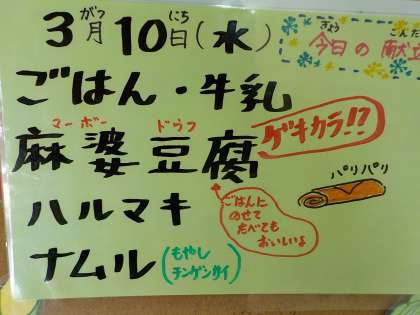 3月10日(水)
がつ にち
きょう こんだ
今日の献立
ごはん・牛乳
マーボー ドウフ
麻婆豆腐
ゲキカラ!?
ハルマキ
パリパリ
ごはんに
のせて
たべても
おいしいよ
ナムル(もやし
チンゲンサイ)